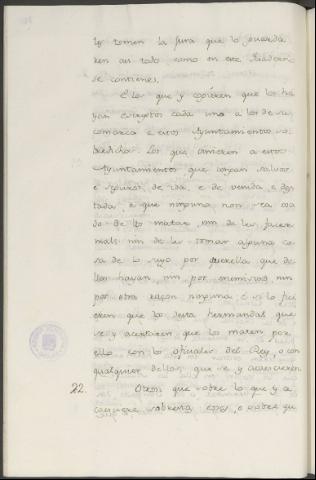 les tomen la jura que lo guarda
ren asi todo como en este Quaderno
se contiene.
E los que y copieren que los ha
yan escriptos cada uno a los de su
comarca a estos Ayuntamientos so
bredichos. Los que vinieren a estos
Ayuntamientos que vayan salvos
e seguros, de ida, e de venida, e des
tada, e que ninguno non sea osa
do de los matar, nin de les facer
mal; nin de les tomar alguna co
sa de lo suyo por querella que de
llos hayan, nin por enemistad, nin
por otra razon ninguna e si lo fici
eren que los desta hermandat que
se y acertaren que los maten por
ello con los oficiales del Rey, o con
qualquier dellos que se y acaescieren
22. Otrosi que sobre lo que y a